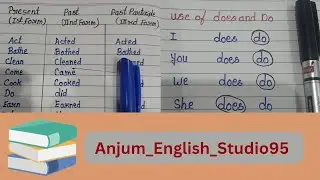 Present Past Past Participle
(Ist Form) (IInd Form) (IIIrd Form)
Act Acted Acted
Bathe Bathed Bathed
Clean Cleaned
Come Came
Cook Cooked
Do did
Earn Earned
use of does and Do
I does do
You does do
We does do
She does do
Anjum_English_Studio95